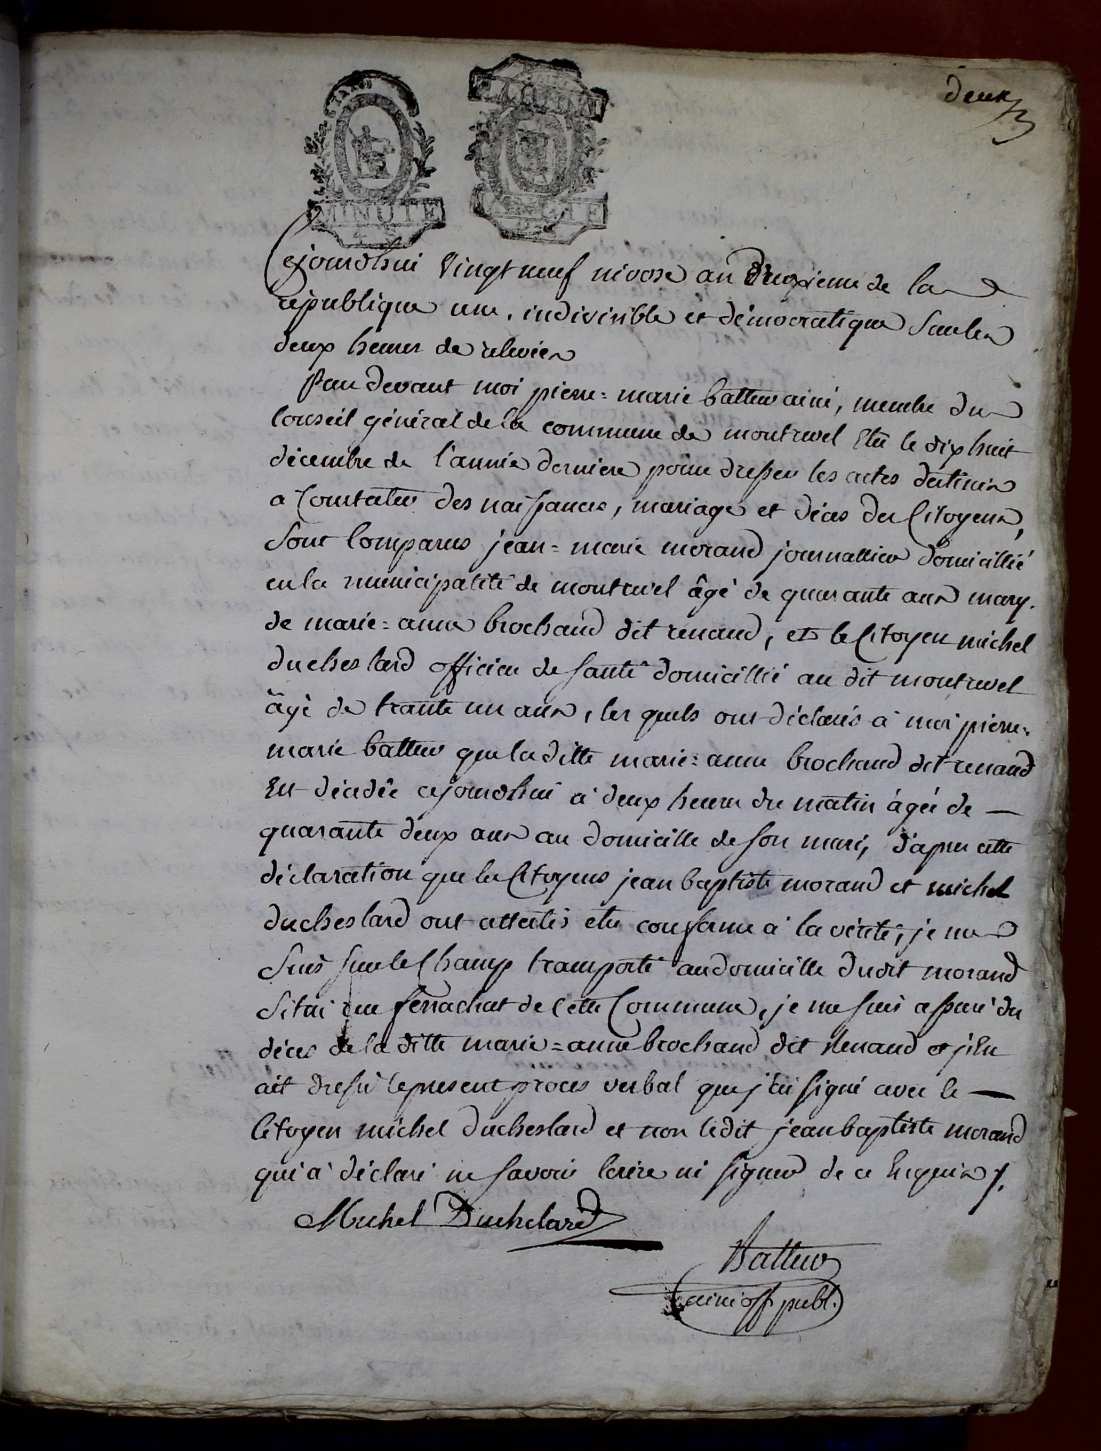 deux
MINUTE
Cejourdhui vingt neuf nivose an deuxieme de la
république une, indivisible et démocratique sur les
deux heures de relevée
Par devant moi pierre=marie batteur ainé, membre du
Conseil général de la commune de montrevel Elu le dix huit
décembre de l'année derniere pour dresser les actes destinés
a Constater des naissances, mariage et déces des Citoyens,
Sont Comparus jean=marie morand journallier domicillié
en la municipalité de montrevel âgé de quarante ans mary
de marie=anne brochand dit renaud, et le Citoyen michel
ducheslard officier de santé domicillié au dit montrevel
âgé de trante un ans, les quels ont déclarés à moi pierre=
marie batteur que la ditte marie=anne brochand dit renaud
Est décédée cejourdhui à deux heure du matin âgée de
quarante deux ans au domicille de son mari, d'apres cette
déclaration que les Citoyens jean baptiste morand et michel
ducheslard ont attestés etre conforme à la vérité, je me
Suis sur le Champ transporté au domicille dudit morand
Situé rue ferrachat de Cette Commune, je me suis assuré du
déces de la ditte marie=anne brochand dit Renaud et j'En
ait dressé le present proces verbal que j'ai signé avec le
Citoyen michel ducheslard et non ledit jean baptiste morand
qui a déclaré ne savoir Ecrire ni signer de ce Enquis
Michel Duchelard
Batteur
ainé off publ.